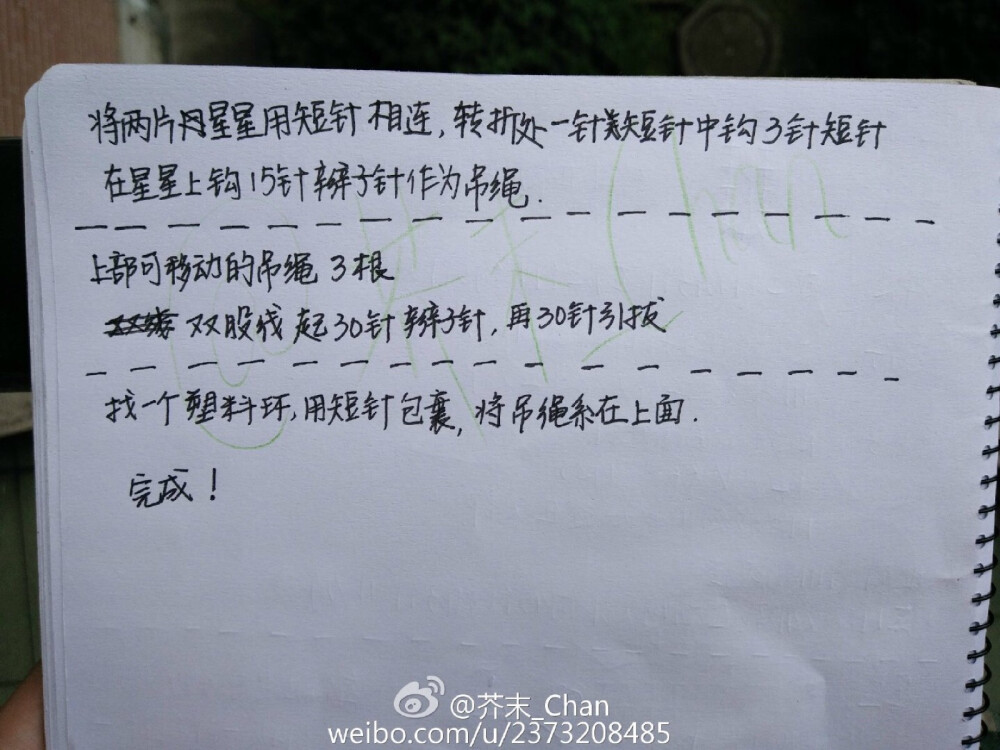 将两片星星用短针相连，转折处一针短针中钩3针短针
在星星上钩15针辫子针作为吊绳.
上部可移动的吊绳 3根
双股线 起30针辫子针，再30针引拔
找一个塑料环，用短针包裹，将吊绳系在上面.
完成！
@芥末_Chan
@芥末_Chan
weibo.com/u/2373208485